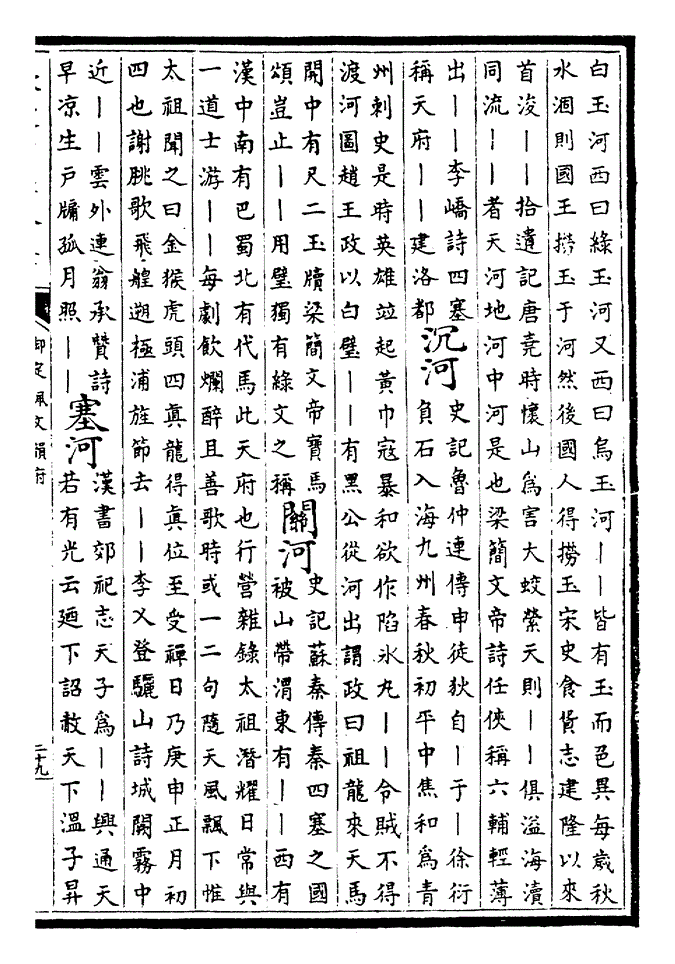 白玉河西曰綠玉河又西曰烏玉河丨丨皆有玉而色異每歲秋
水涸則國王撈玉于河然後國人得撈玉宋史食貨志建隆以來
首浚丨丨拾遺記唐堯時懷山為害大蛟縈天則丨丨俱溢海瀆
同流丨丨者天河地河中河是也梁簡文帝詩任俠稱六輔輕薄
出丨丨李嶠詩四塞
稱天府丨丨建洛都
沉河
史記魯仲連傳申徒狄自丨于丨徐衍
負石入海九州春秋初平中焦和為青
州刺史是時英雄竝起黃巾寇暴和欲作陷冰丸丨丨令賊不得
渡河圖趙王政以白璧丨丨有黑公從河出謂政曰祖龍來天馬
開中有尺二玉牘梁簡文帝寶馬
頌豈止丨丨用璧獨有綠文之稱
關河
史記蘇秦傳秦四塞之國
被山帶渭東有丨丨西有
漢中南有巴蜀北有代馬此天府也行營雜錄太祖潛耀日常與
一道士游丨丨每劇飲爛醉且善歌時或一二句隨天風飄下惟
太祖聞之曰金猴虎頭四真龍得真位至受禪日乃庚申正月初
四也謝朓歌飛艎遡極浦旌節去丨丨李乂登驪山詩城闕霧中
近丨丨雲外連翁承贊詩
早凉生戶牖孤月照丨丨
塞河
漢書郊祀志天子為丨丨興通天
若有光云廼下詔赦天下溫子昇
御定佩文韻府
二十九